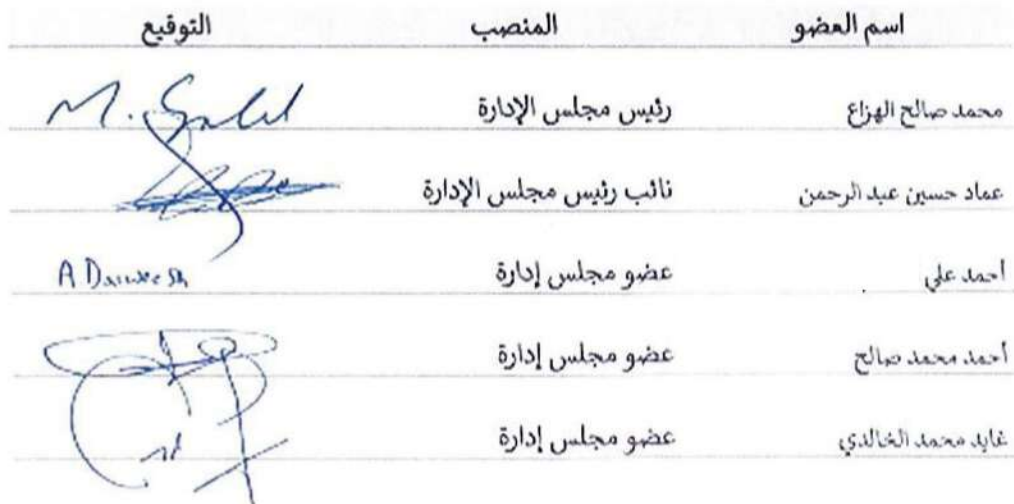 اسم العضو المنصب التوقيع
محمد صالح الهزاع رئيس مجلس الإدارة
عماد حسين عبد الرحمن نائب رئيس مجلس الإدارة
أحمد علي عضو مجلس إدارة A Darweesh
أحمد محمد صالح عضو مجلس إدارة
غايد محمد الخالدي عضو مجلس إدارة